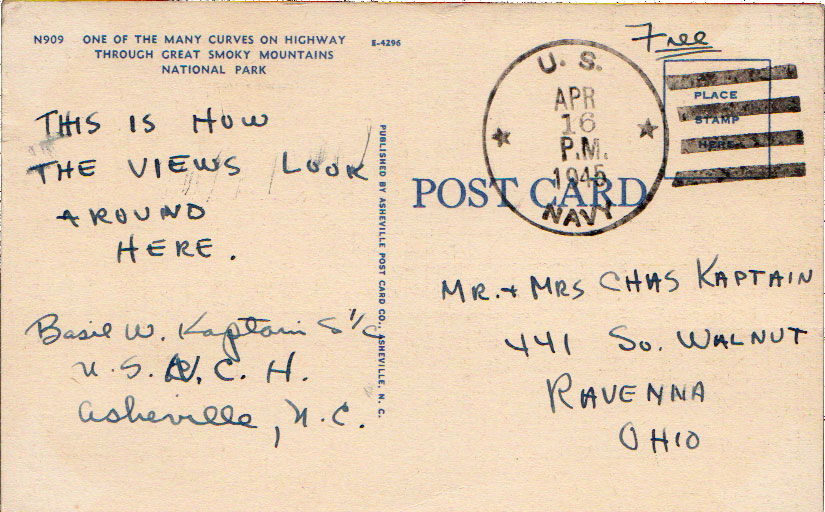 N909 ONE OF THE MANY CURVES ON HIGHWAY
THROUGH GREAT SMOKY MOUNTAINS
NATIONAL PARK
E-4296
THIS IS HOW
THE VIEWS LOOK
AROUND
HERE.
Basil W. Kaptain S 1/c
U.S.N.C.H.
Asheville, N.C.
PUBLISHED BY ASHEVILLE POST CARD CO., ASHEVILLE, N. C.
Free
U. S.
APR
16
P.M.
1945
NAVY
PLACE
STAMP
HERE
POST CARD
MR. + MRS CHAS KAPTAIN
441 So. WALNUT
RAVENNA
OHIO